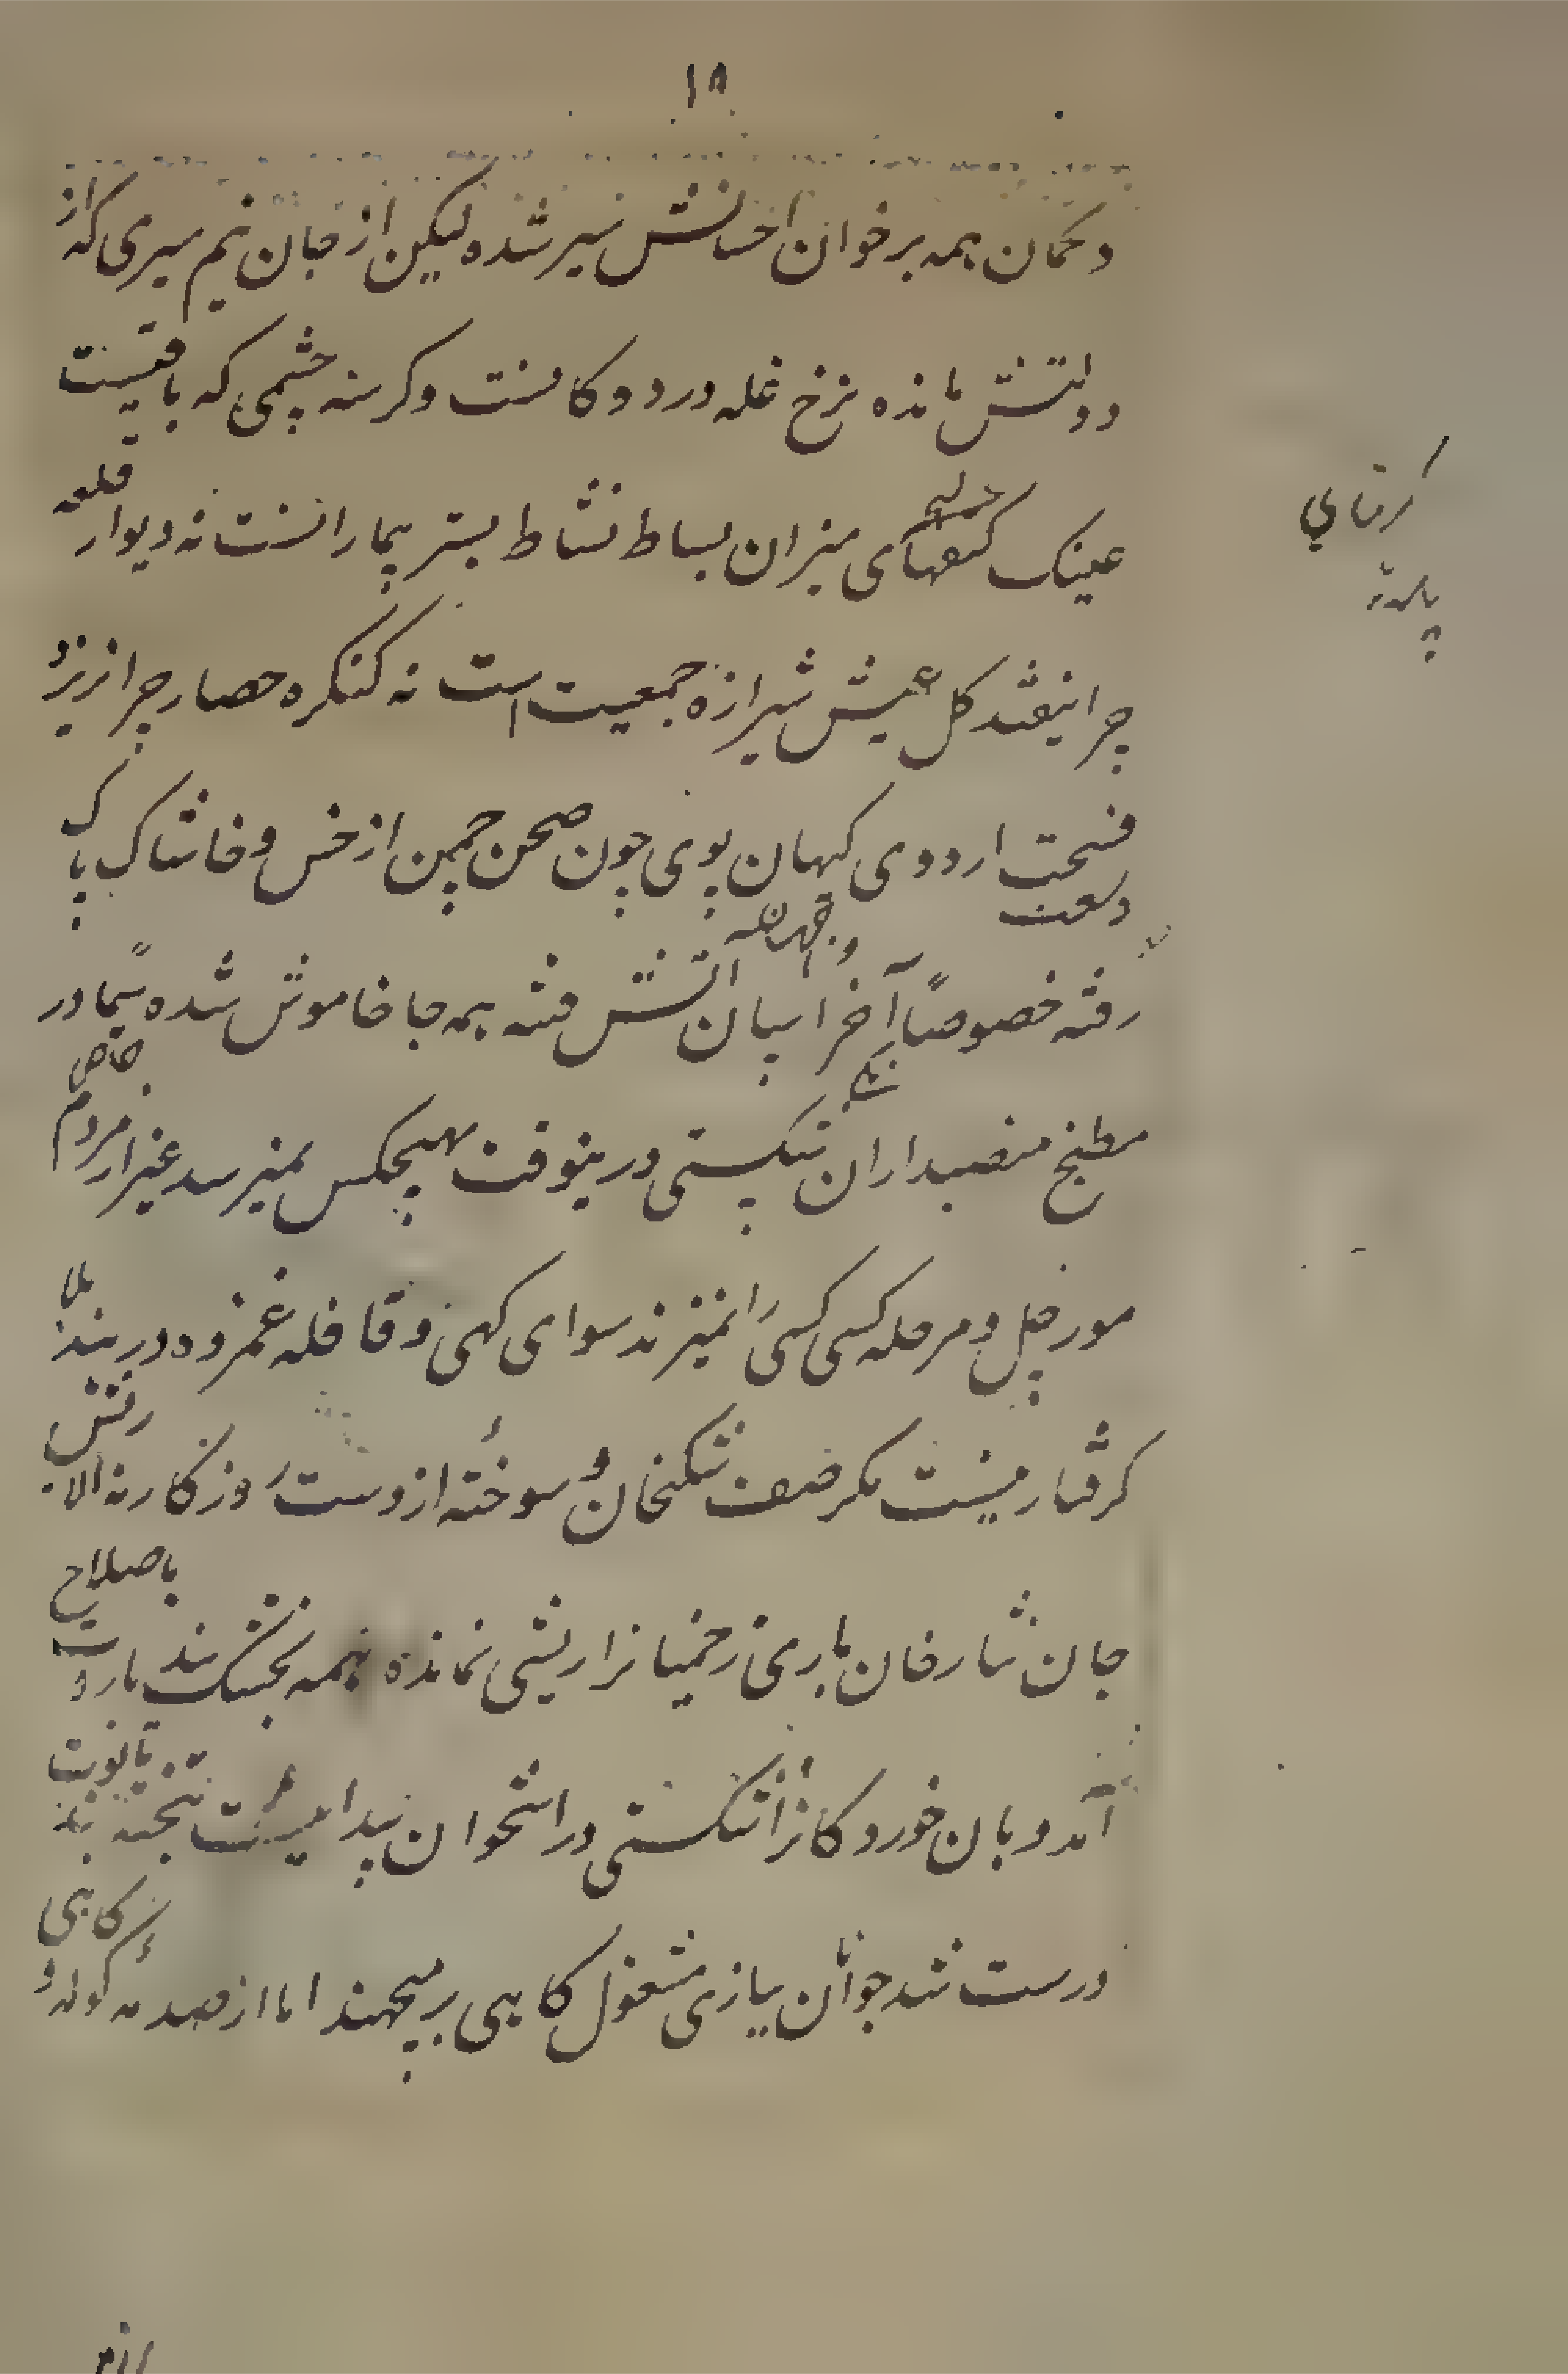 ۱۸
دکمان همه بر خوان احسانش سیر شده لیکن از جان نیم سیری که از
دولتش مانده نرخ غله در دوکانست و کرسنه چشمی که باقیست
عینک کفهای میزان بساط نشاط بستر بیمارانست نه دیوار قلعه
چرا نیفتد کل عیش شیرازه جمعیت است نه کنکره حصار چرا بریزد
فسحت اردوی کیهان پوی چون صحن چمن از خس و خاشاک پاک
وسعت
رفته خصوصاً آخر اسپان آتش فتنه همه جا خاموش شده سیّما در
مطبخ منصبداران شکستی درینوقت بهیچکس نمیرسد غیر از مردم خاص
مورچل و مرحله کسی کسی را نمیزند سوای کهی و قافله غمزده در بند بلا
کرفتار نیست مکر صف شکنخان و سوخته از دست روزکار نه الا ریش
جان نثار خان باری زخمیانرا ریشی نمانده همه بخشک بند باصلاح
آمد و بان خوردکانرا شکستی در استخوان پیدا نیست تخته بند تابوت
درست شد جوانان ببازی مشغول کاهی بر میجهند اما از صدمه کوله و کاهی